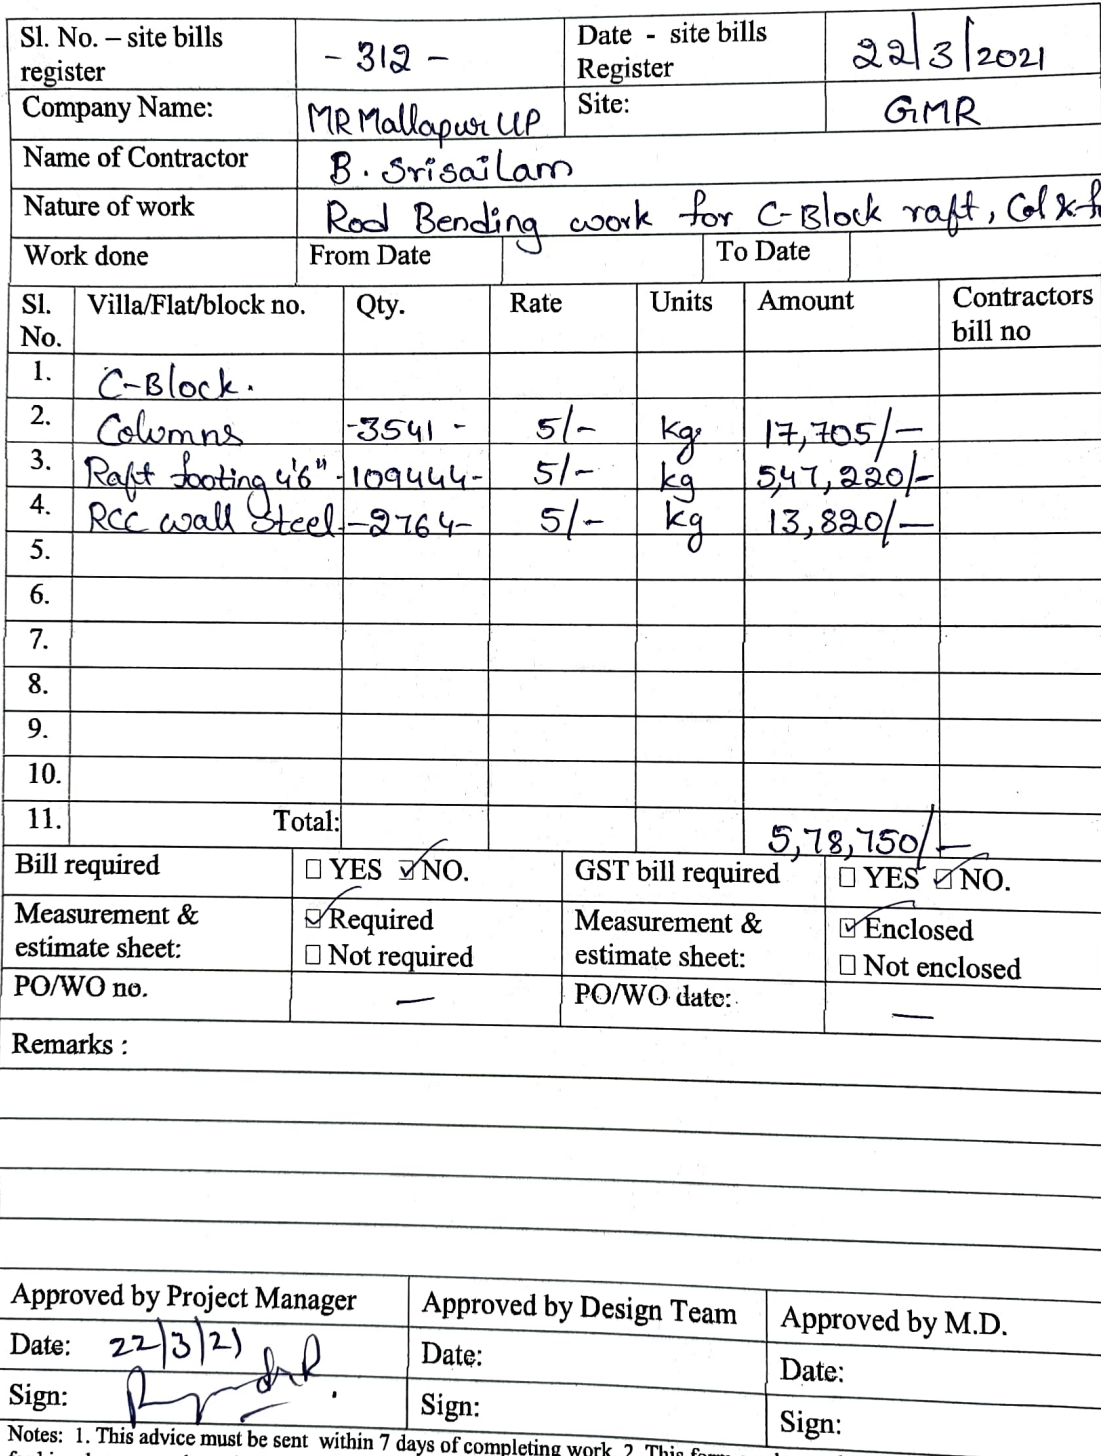 Sl. No. – site bills register - 312 - Date - site bills Register 22/3/2021
Company Name: MR Mallapur LLP Site: GMR
Name of Contractor B. Srisailam
Nature of work Rod Bending work for C-Block raft, Col &
Work done From Date To Date
Sl. No. Villa/Flat/block no. Qty. Rate Units Amount Contractors bill no
1. C-Block.
2. Columns -3541 - 5/- kg 17,705/-
3. Raft footing 4'6" -109444- 5/- kg 5,47,220/-
4. RCC wall Steel -2764- 5/- kg 13,820/-
5.
6.
7.
8.
9.
10.
11. Total: 5,78,750/-
Bill required ☐ YES ☑ NO. GST bill required ☐ YES ☑ NO.
Measurement & estimate sheet: ☑ Required ☐ Not required Measurement & estimate sheet: ☑ Enclosed ☐ Not enclosed
PO/WO no. — PO/WO date: —
Remarks :
Approved by Project Manager Approved by Design Team Approved by M.D.
Date: 22/3/21 Date: Date:
Sign: Sign: Sign:
Notes: 1. This advice must be sent within 7 days of completing work. 2. This